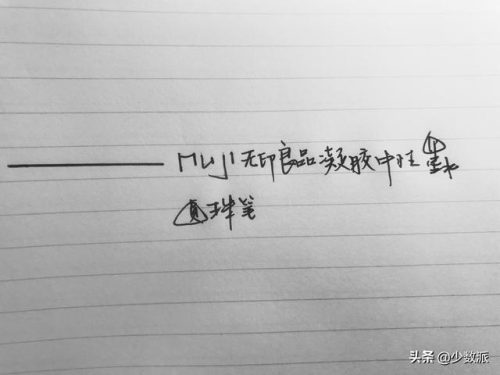 MUJI无印良品凝胶中性墨水
圆珠笔
头条 @少数派